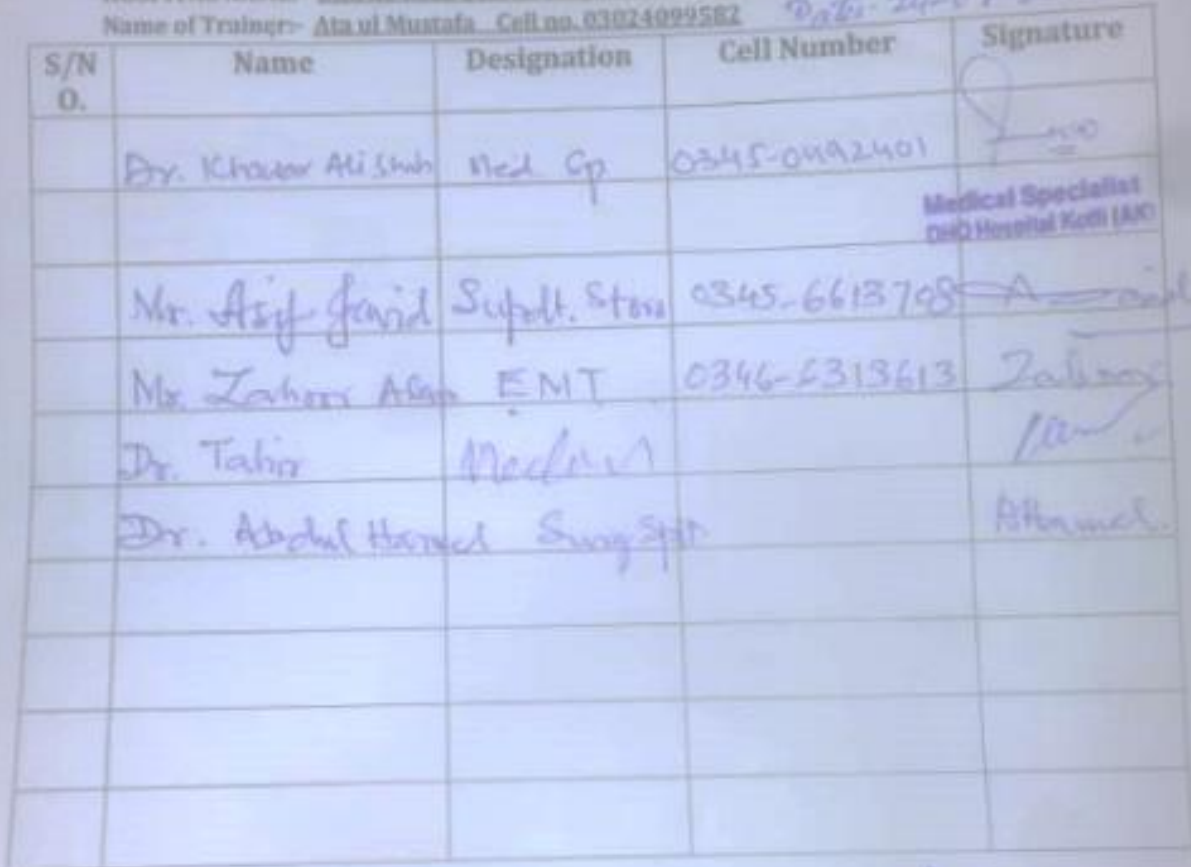 Name of Trainer:- Ata ul Mustafa Cell no. 03024099582
S/N O. Name Designation Cell Number Signature
Dr. Khawar Ali Shah Med Sp 0345-0492401
Medical Specialist
DHQ Hospital Kotli (AK)
Mr. Asif Javid Supdt. Store 0345-6613708
Mr. Zahoor EMT 0346-6313613
Dr. Tahir
Dr. Abdul Hamed Surg Spt AHamed.